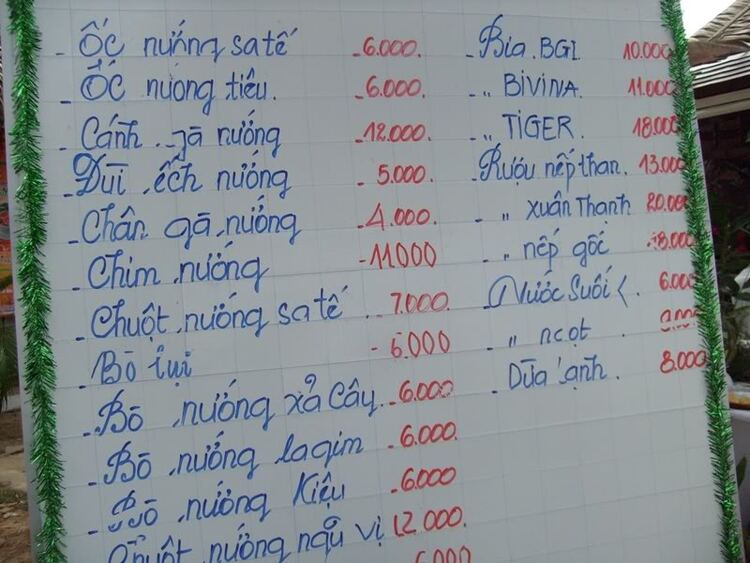 - Ốc nướng sa tế - 6.000.
- Ốc nướng tiêu. - 6.000.
- Cánh gà nướng - 12.000.
- Đùi ếch nướng - 5.000.
- Chân gà nướng - 4.000.
- Chim nướng - 11000
- Chuột nướng sa tế 7.000.
- Bò lụi - 6.000
- Bò nướng xả Cây. - 6.000
- Bò nướng lagim - 6.000.
- Bò nướng Kiệu - 6.000
nướng ngũ vị 12.000.
6000
- Bia. BGI 10.000
- ,, BiViNA. 11.000
- ,, TiGER. 18.000
- Rượu nếp than. 13.000
- ,, xuân Thạnh 20.000
- ,, nếp gốc 18.000
- Nước Suối 6.000
- ,, ngọt
- Dừa lạnh. 8.000